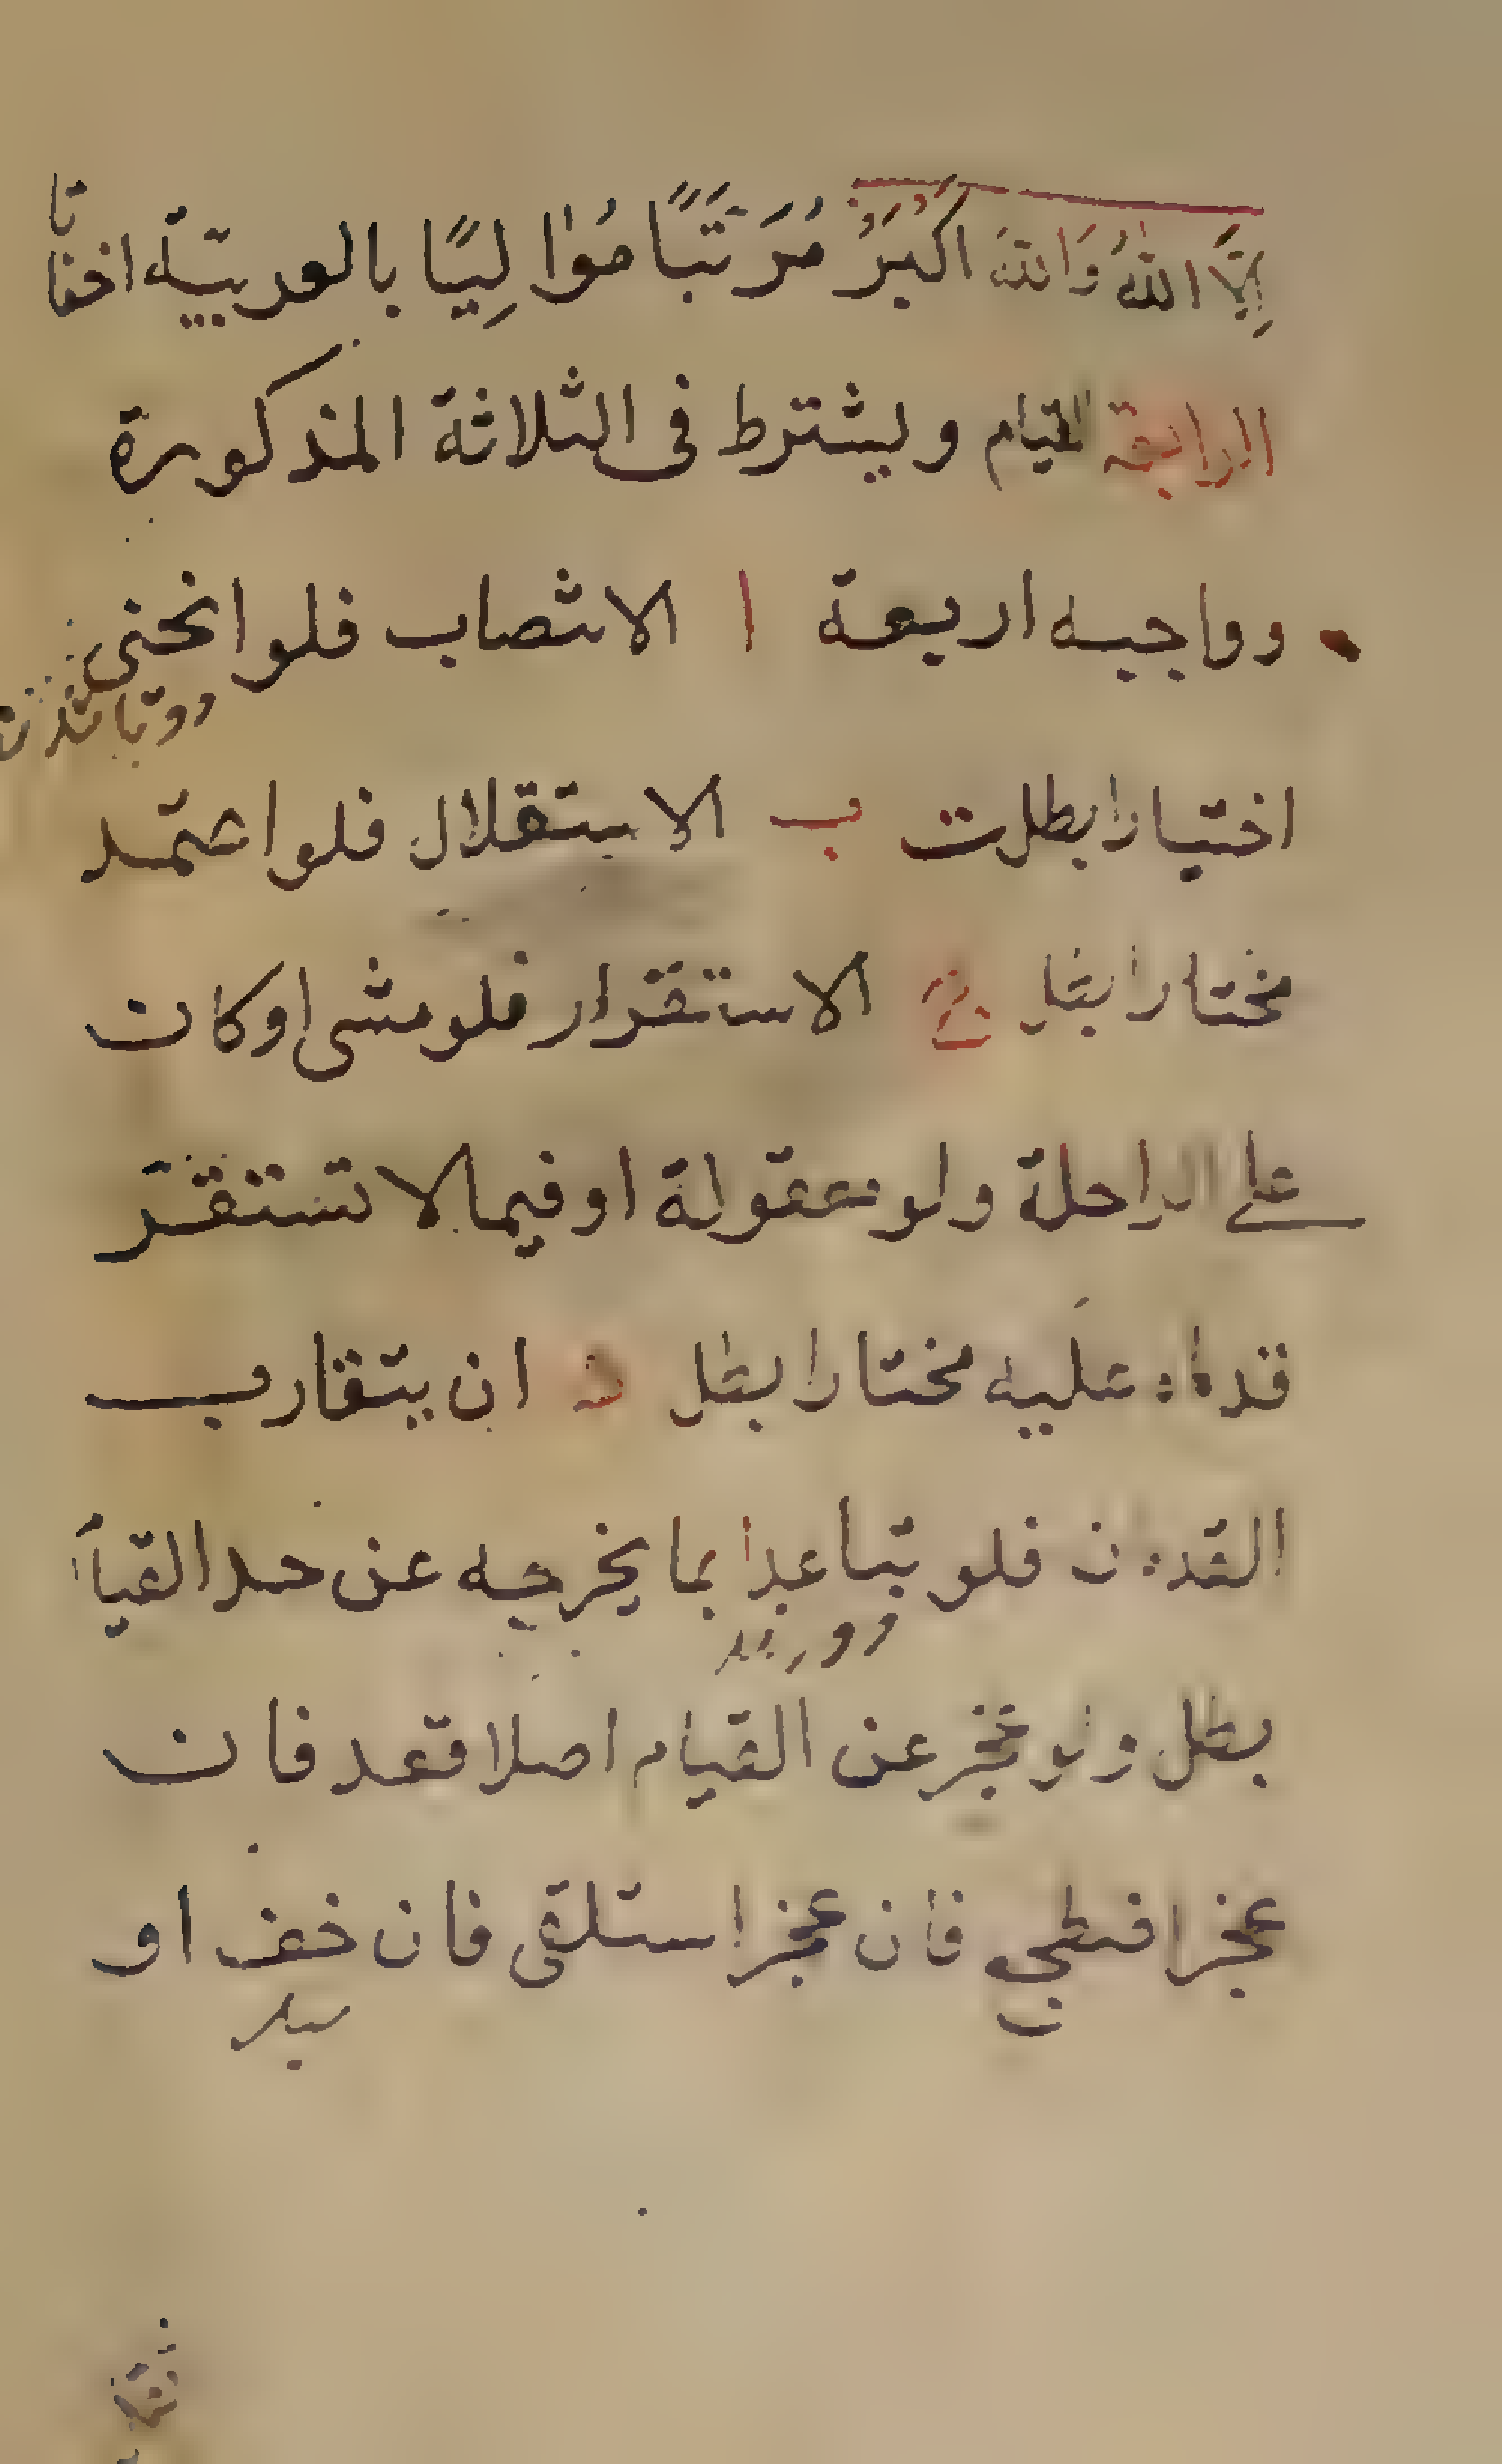 اِلَّا اللّٰهُ وَاللّٰهُ اَكْبَرُ مُرَتَّبًا مُوٰالِيًا بالعربيّة اخفاتا
الرابعة القيام ويشترط فى الثلاثة المذكورة
وواجبه اربعة ا الانتصاب فلو انحنى
اختيارا بطلت ب الاستقلال فلو اعتمد
مختارا بطل ج الاستقرار فلو مشى او كان
على الراحلة ولو معقولة او فيما لا تستقر
قدماه عليه مختارا بطل د ان يتقارب
القدمان فلو تباعدا بما يخرجه عن حد القيام
بطل ولو عجز عن القيام اصلا قعد فان
عجز اضطجع فان عجز استلقى فان خف او